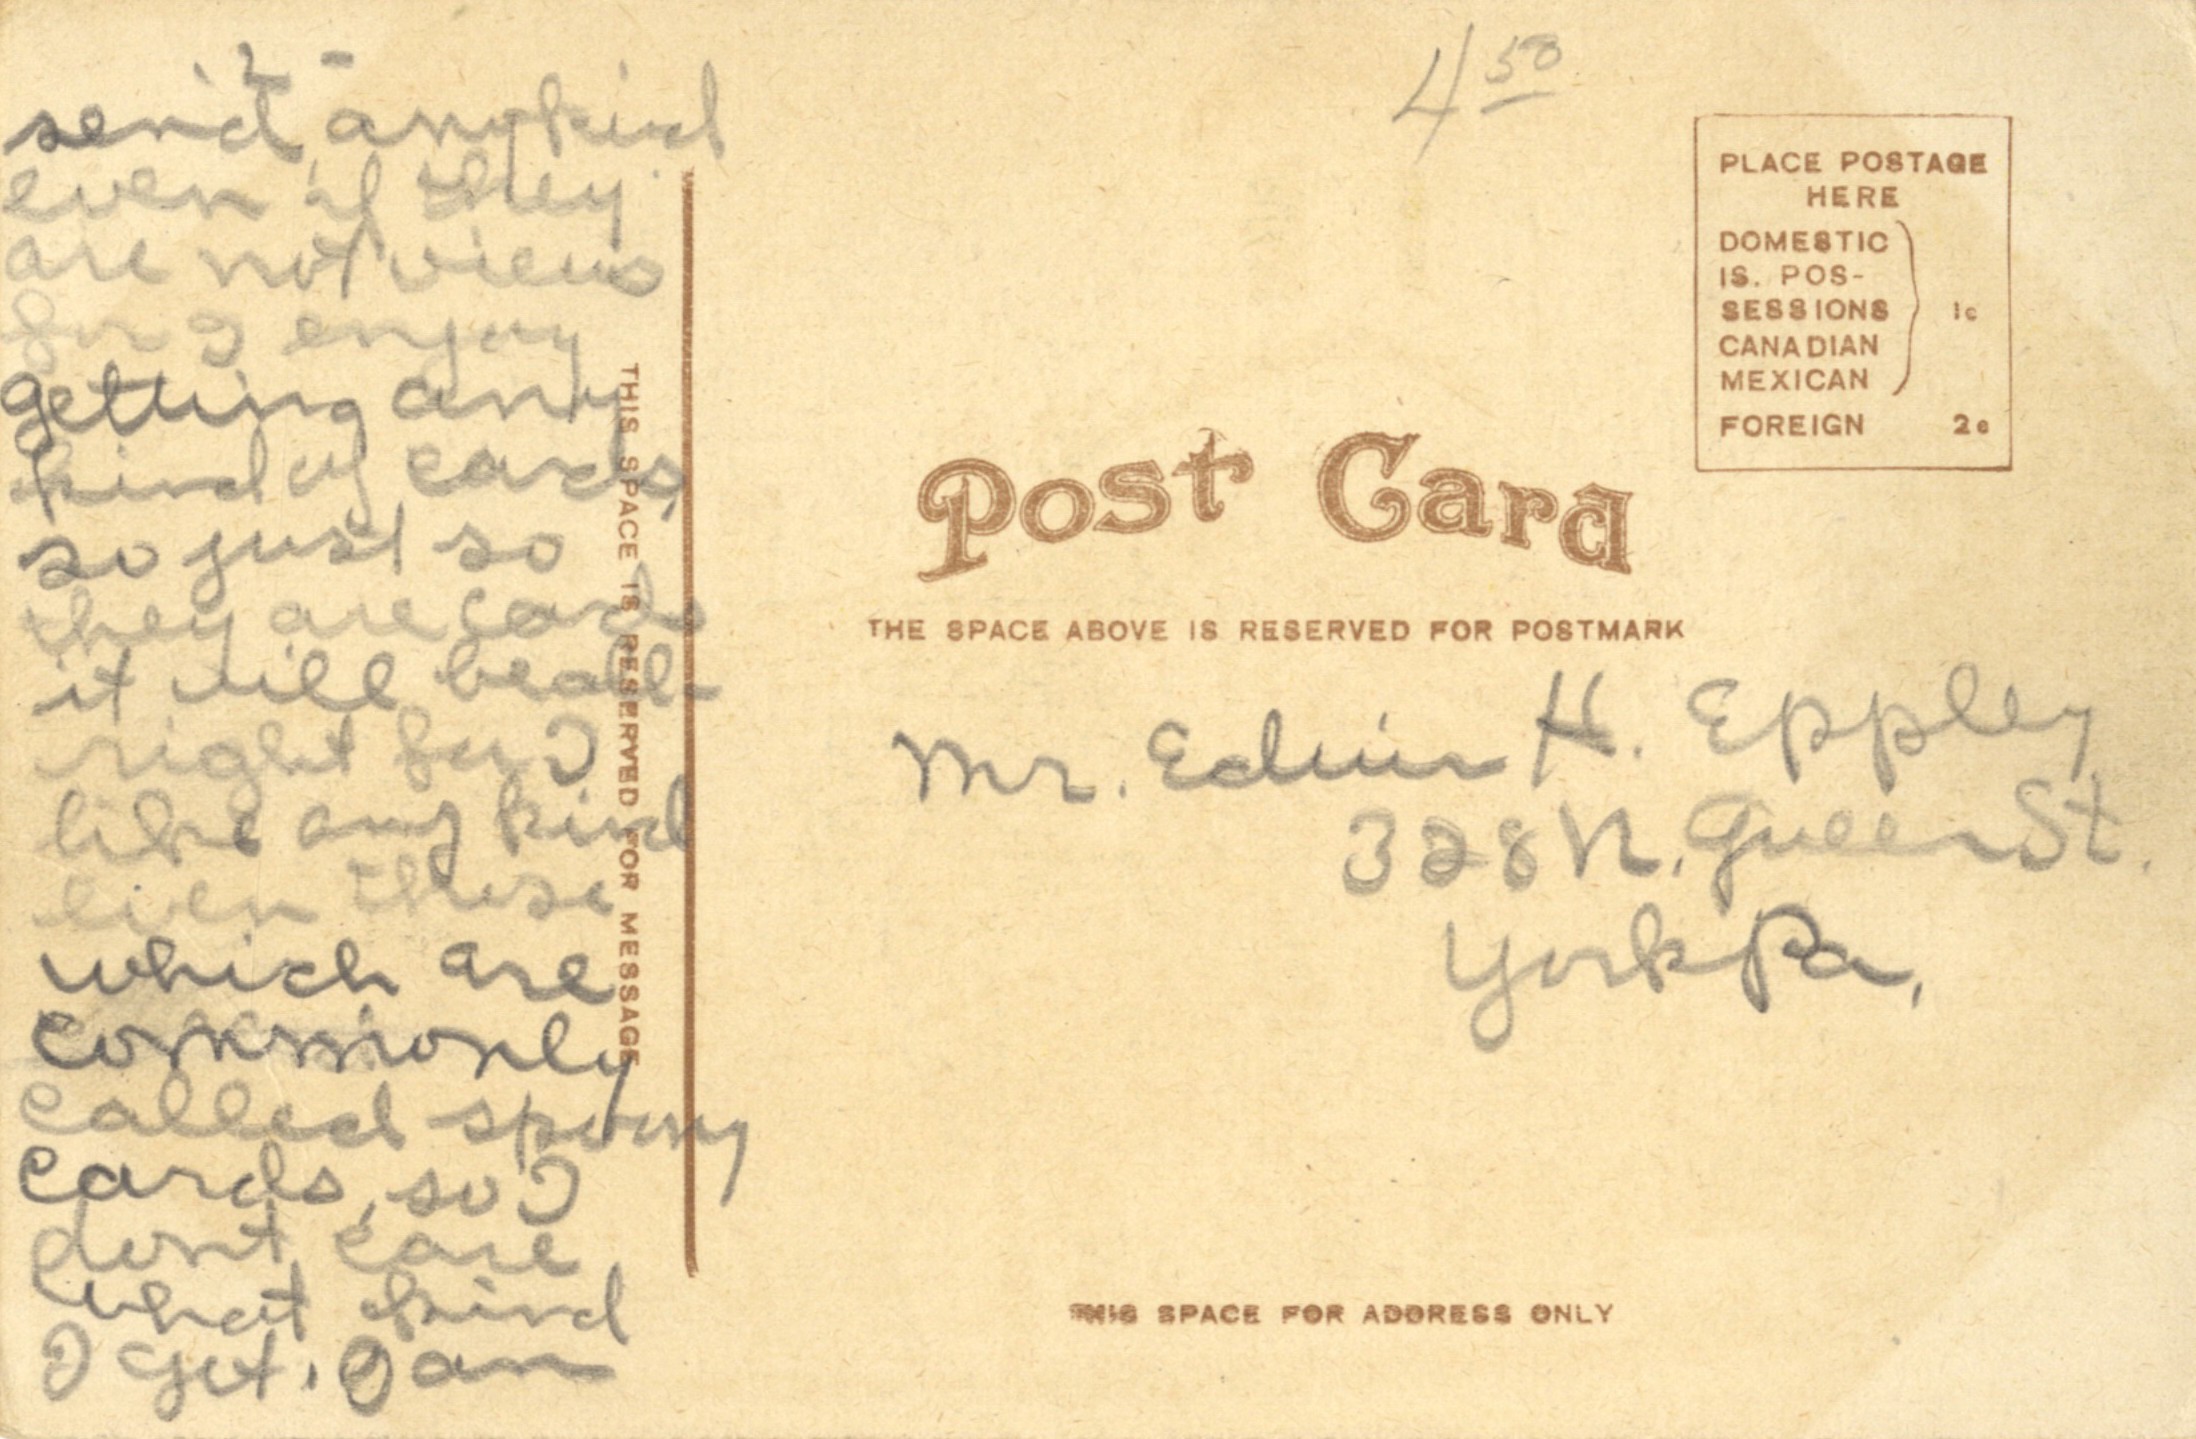 2 -
send any kind
even if they
are not views
for I enjoy
getting any
kind of cards,
so just so
they are cards
it will be all-
right for I
like any kind
even those
which are
commonly
called spoony
cards, so I
dont care
what kind
I get. I am
THIS SPACE IS RESERVED FOR MESSAGE
4 50
PLACE POSTAGE
HERE
DOMESTIC
IS. POS-
SESSIONS 1c
CANADIAN
MEXICAN
FOREIGN 2c
Post Card
THE SPACE ABOVE IS RESERVED FOR POSTMARK
Mr. Edwin H. Eppley
328 N. Queen St.
York Pa,
THIS SPACE FOR ADDRESS ONLY